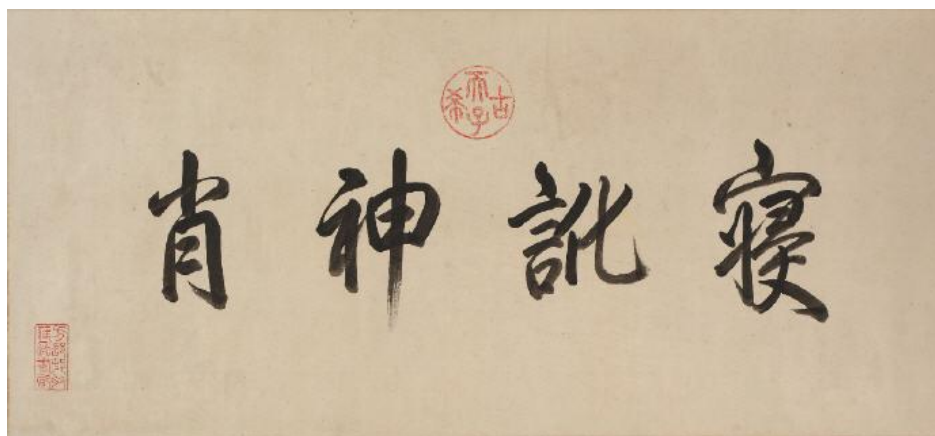 古希天子
寢訛神肖